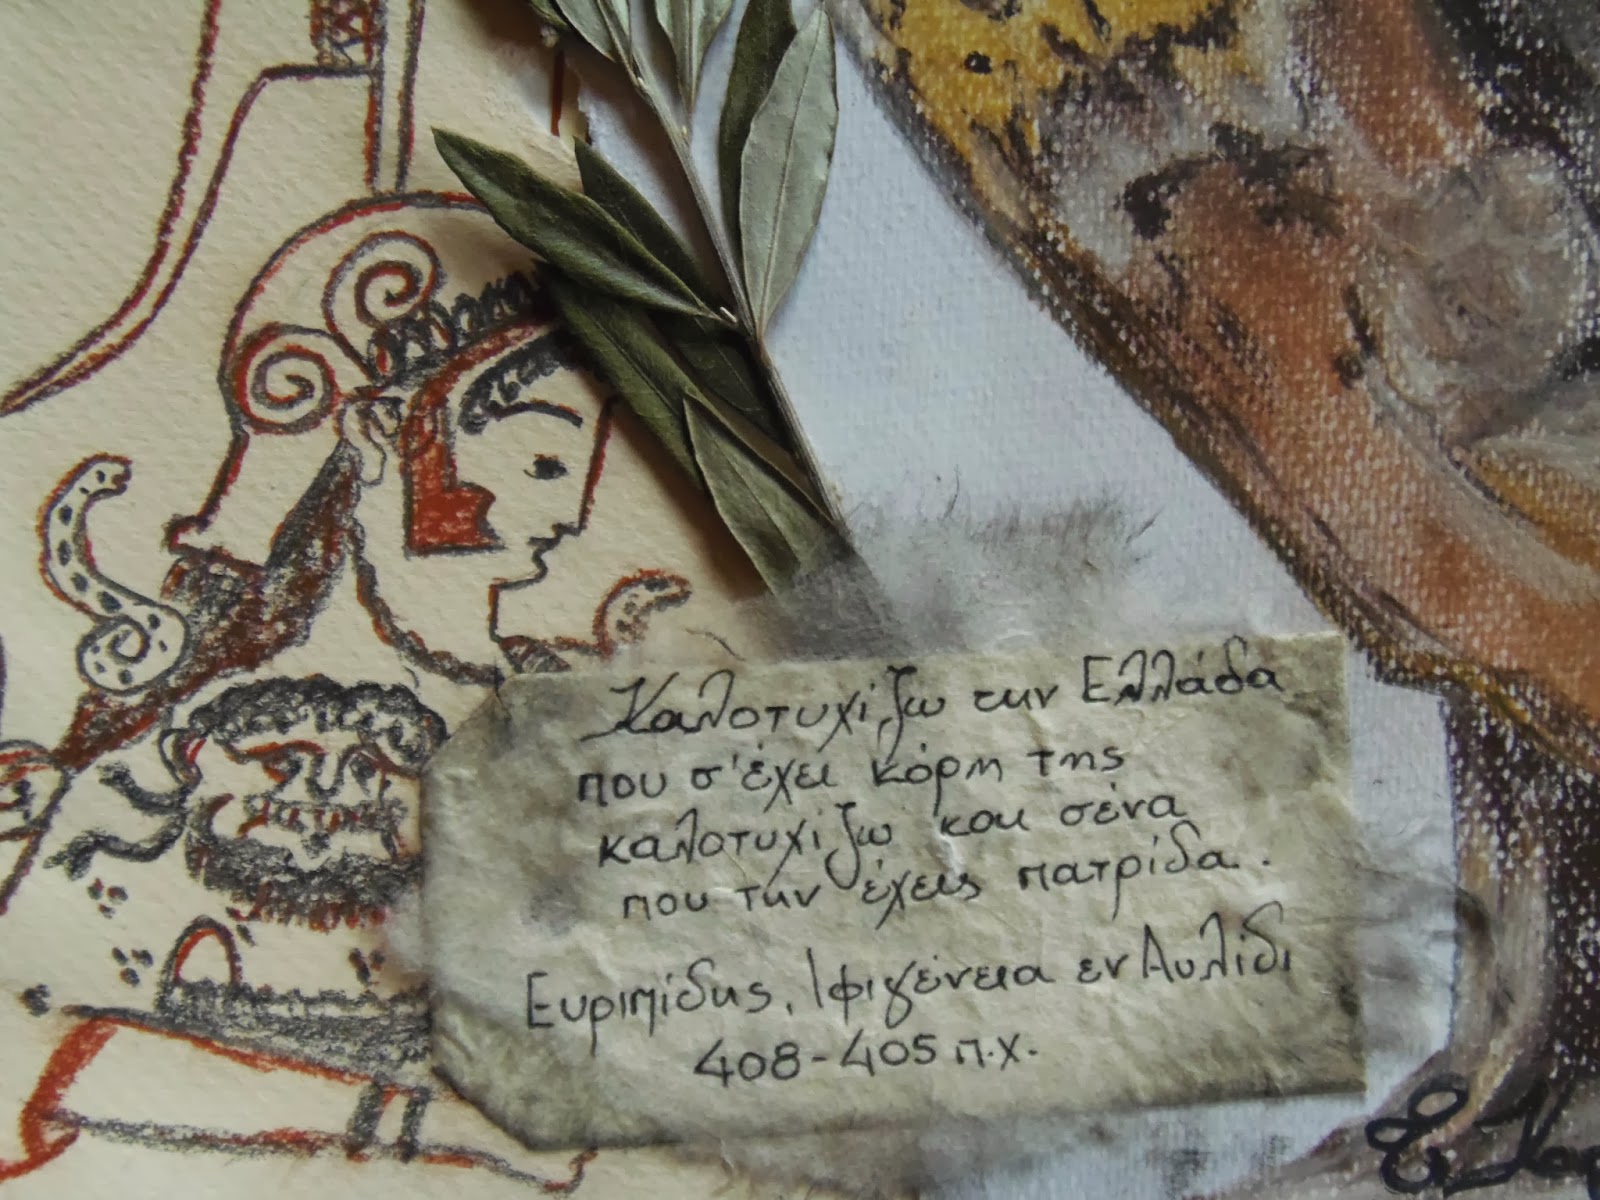 Καλοτυχίζω την Ελλάδα
που σ' έχει κόρη της
καλοτυχίζω και σένα
που την έχεις πατρίδα.
Ευριπίδης, Ιφιγένεια εν Αυλίδι
408-405 π.χ.